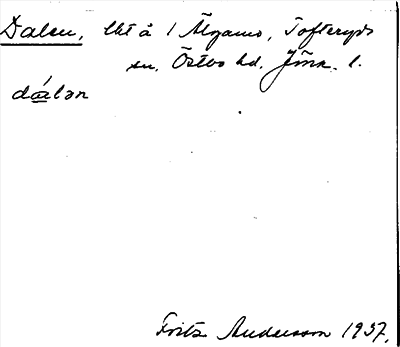 Dalen, lht å 1 Älgamo, Tofteryds
sn, Östbo hd. Jönk. l.
dálən
Fritz Andersson 1937.